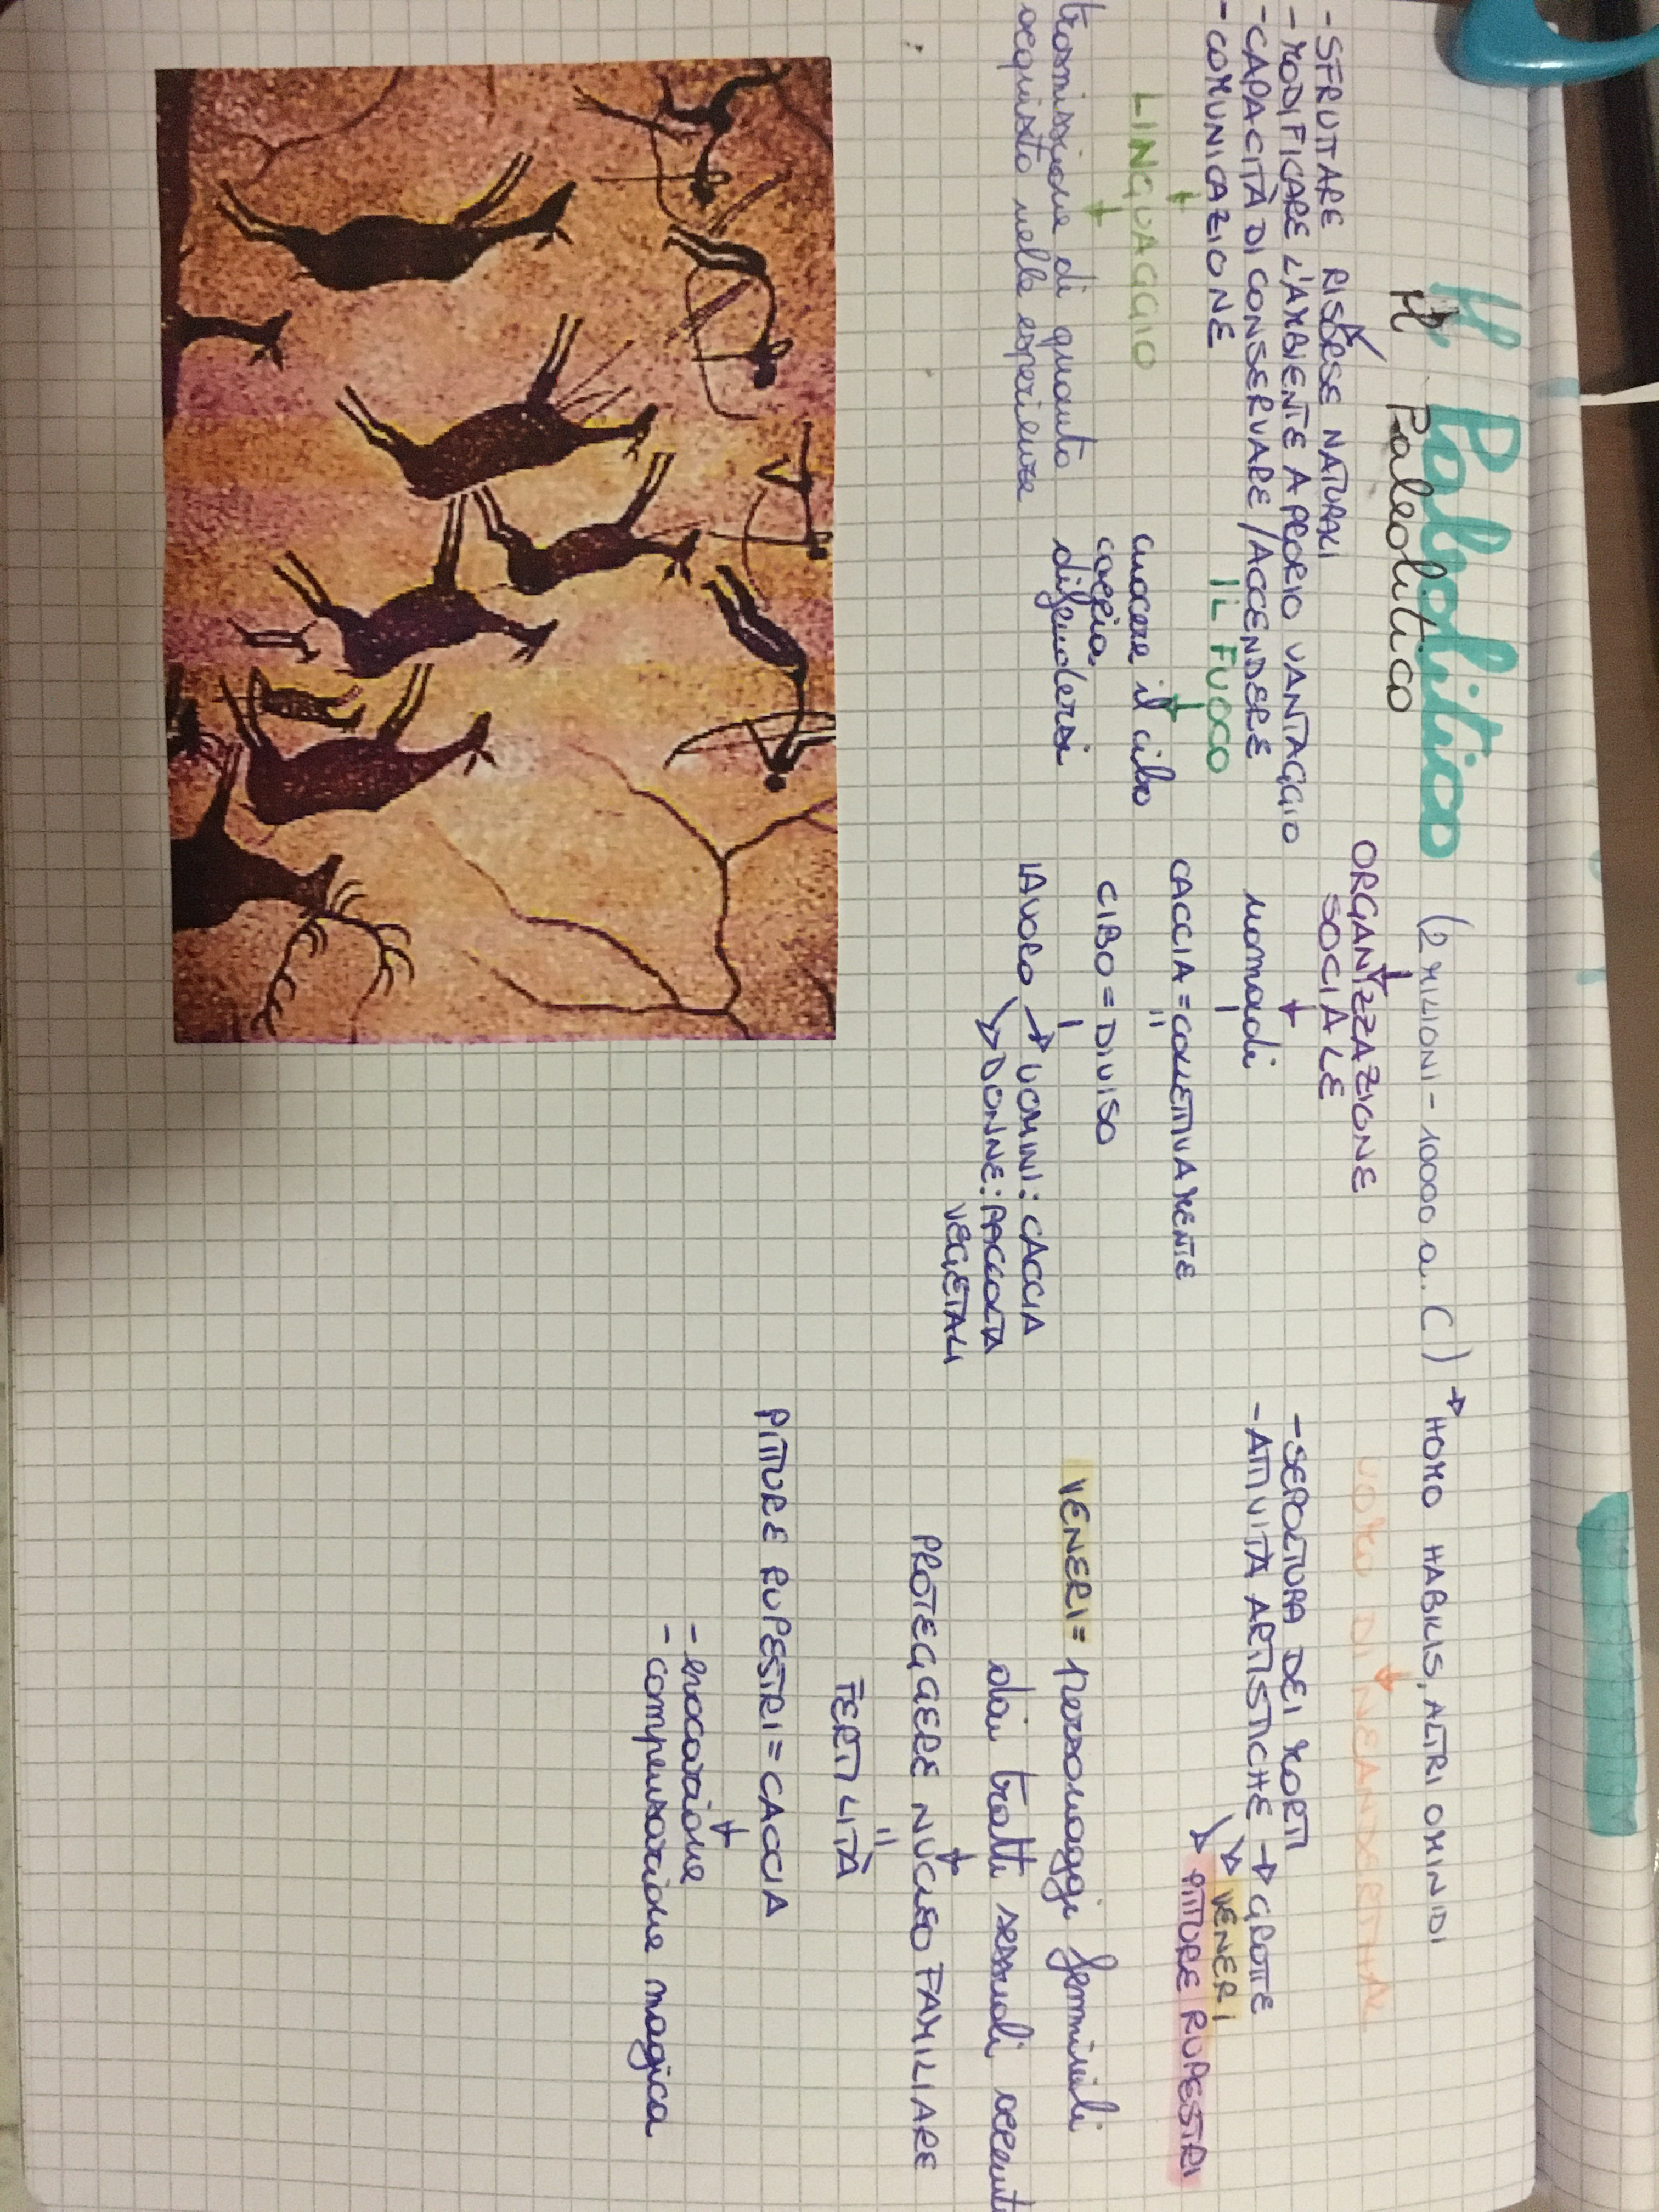 Il Paleolitico (2 MILIONI - 10000 a.C) → HOMO HABILIS, ALTRI OMINIDI
Il Paleolitico
- SFRUTTARE RISORSE NATURALI
- MODIFICARE L'AMBIENTE A PROPRIO VANTAGGIO
- CAPACITÀ DI CONSERVARE/ACCENDERE
IL FUOCO
- COMUNICAZIONE
LINGUAGGIO
trasmissione di quanto
acquisito nelle esperienze
cuocere il cibo
caccia
difendersi
ORGANIZZAZIONE
SOCIALE
nomadi
CACCIA = COLLETTIVAMENTE
CIBO = DIVISO
LAVORO → UOMINI: CACCIA
→ DONNE: RACCOLTA
VEGETALI
UOMO DI NEANDERTHAL
- SEPOLTURA DEI MORTI
- ATTIVITÀ ARTISTICHE → GROTTE
→ VENERI
→ PITTURE RUPESTRI
VENERI = personaggi femminili
dai tratti sessuali
PROTEGGERE NUCLEO FAMILIARE
=
FERTILITÀ
PITTURE RUPESTRI = CACCIA
- evocazione
- compensazione magica